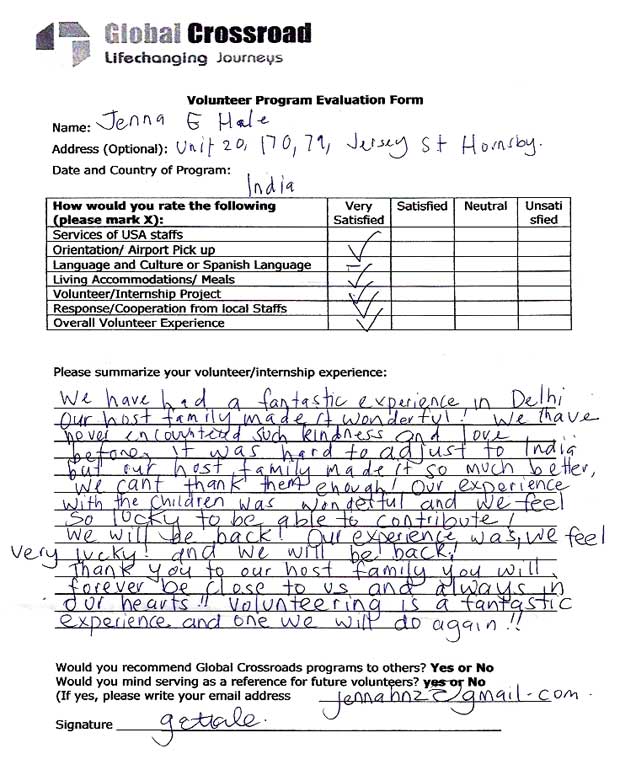 Global Crossroad
Lifechanging Journeys
Volunteer Program Evaluation Form
Name: Jenna E Hale
Address (Optional): Unit 20, 170, 79, Jersey St Hornsby.
Date and Country of Program:
India
How would you rate the following (please mark X): Very Satisfied Satisfied Neutral Unsatisfied
Services of USA staffs
Orientation/ Airport Pick up
Language and Culture or Spanish Language
Living Accommodations/ Meals
Volunteer/Internship Project
Response/Cooperation from local Staffs
Overall Volunteer Experience
Please summarize your volunteer/internship experience:
We have had a fantastic experience in Delhi
Our host family made it wonderful! We have
never encountered such kindness and love
before, it was hard to adjust to India
but our host family made it so much better,
we cant thank them enough! Our experience
with the children was wonderful and we feel
so lucky to be able to contribute!
We will be back! Our experience was, we feel
very lucky! and we will be back!
Thank you to our host family you will
forever be close to us and always in
our hearts!! Volunteering is a fantastic
experience and one we will do again!!
Would you recommend Global Crossroads programs to others? Yes or No
Would you mind serving as a reference for future volunteers? yes or No
(If yes, please write your email address jennahn22@gmail.com.
Signature